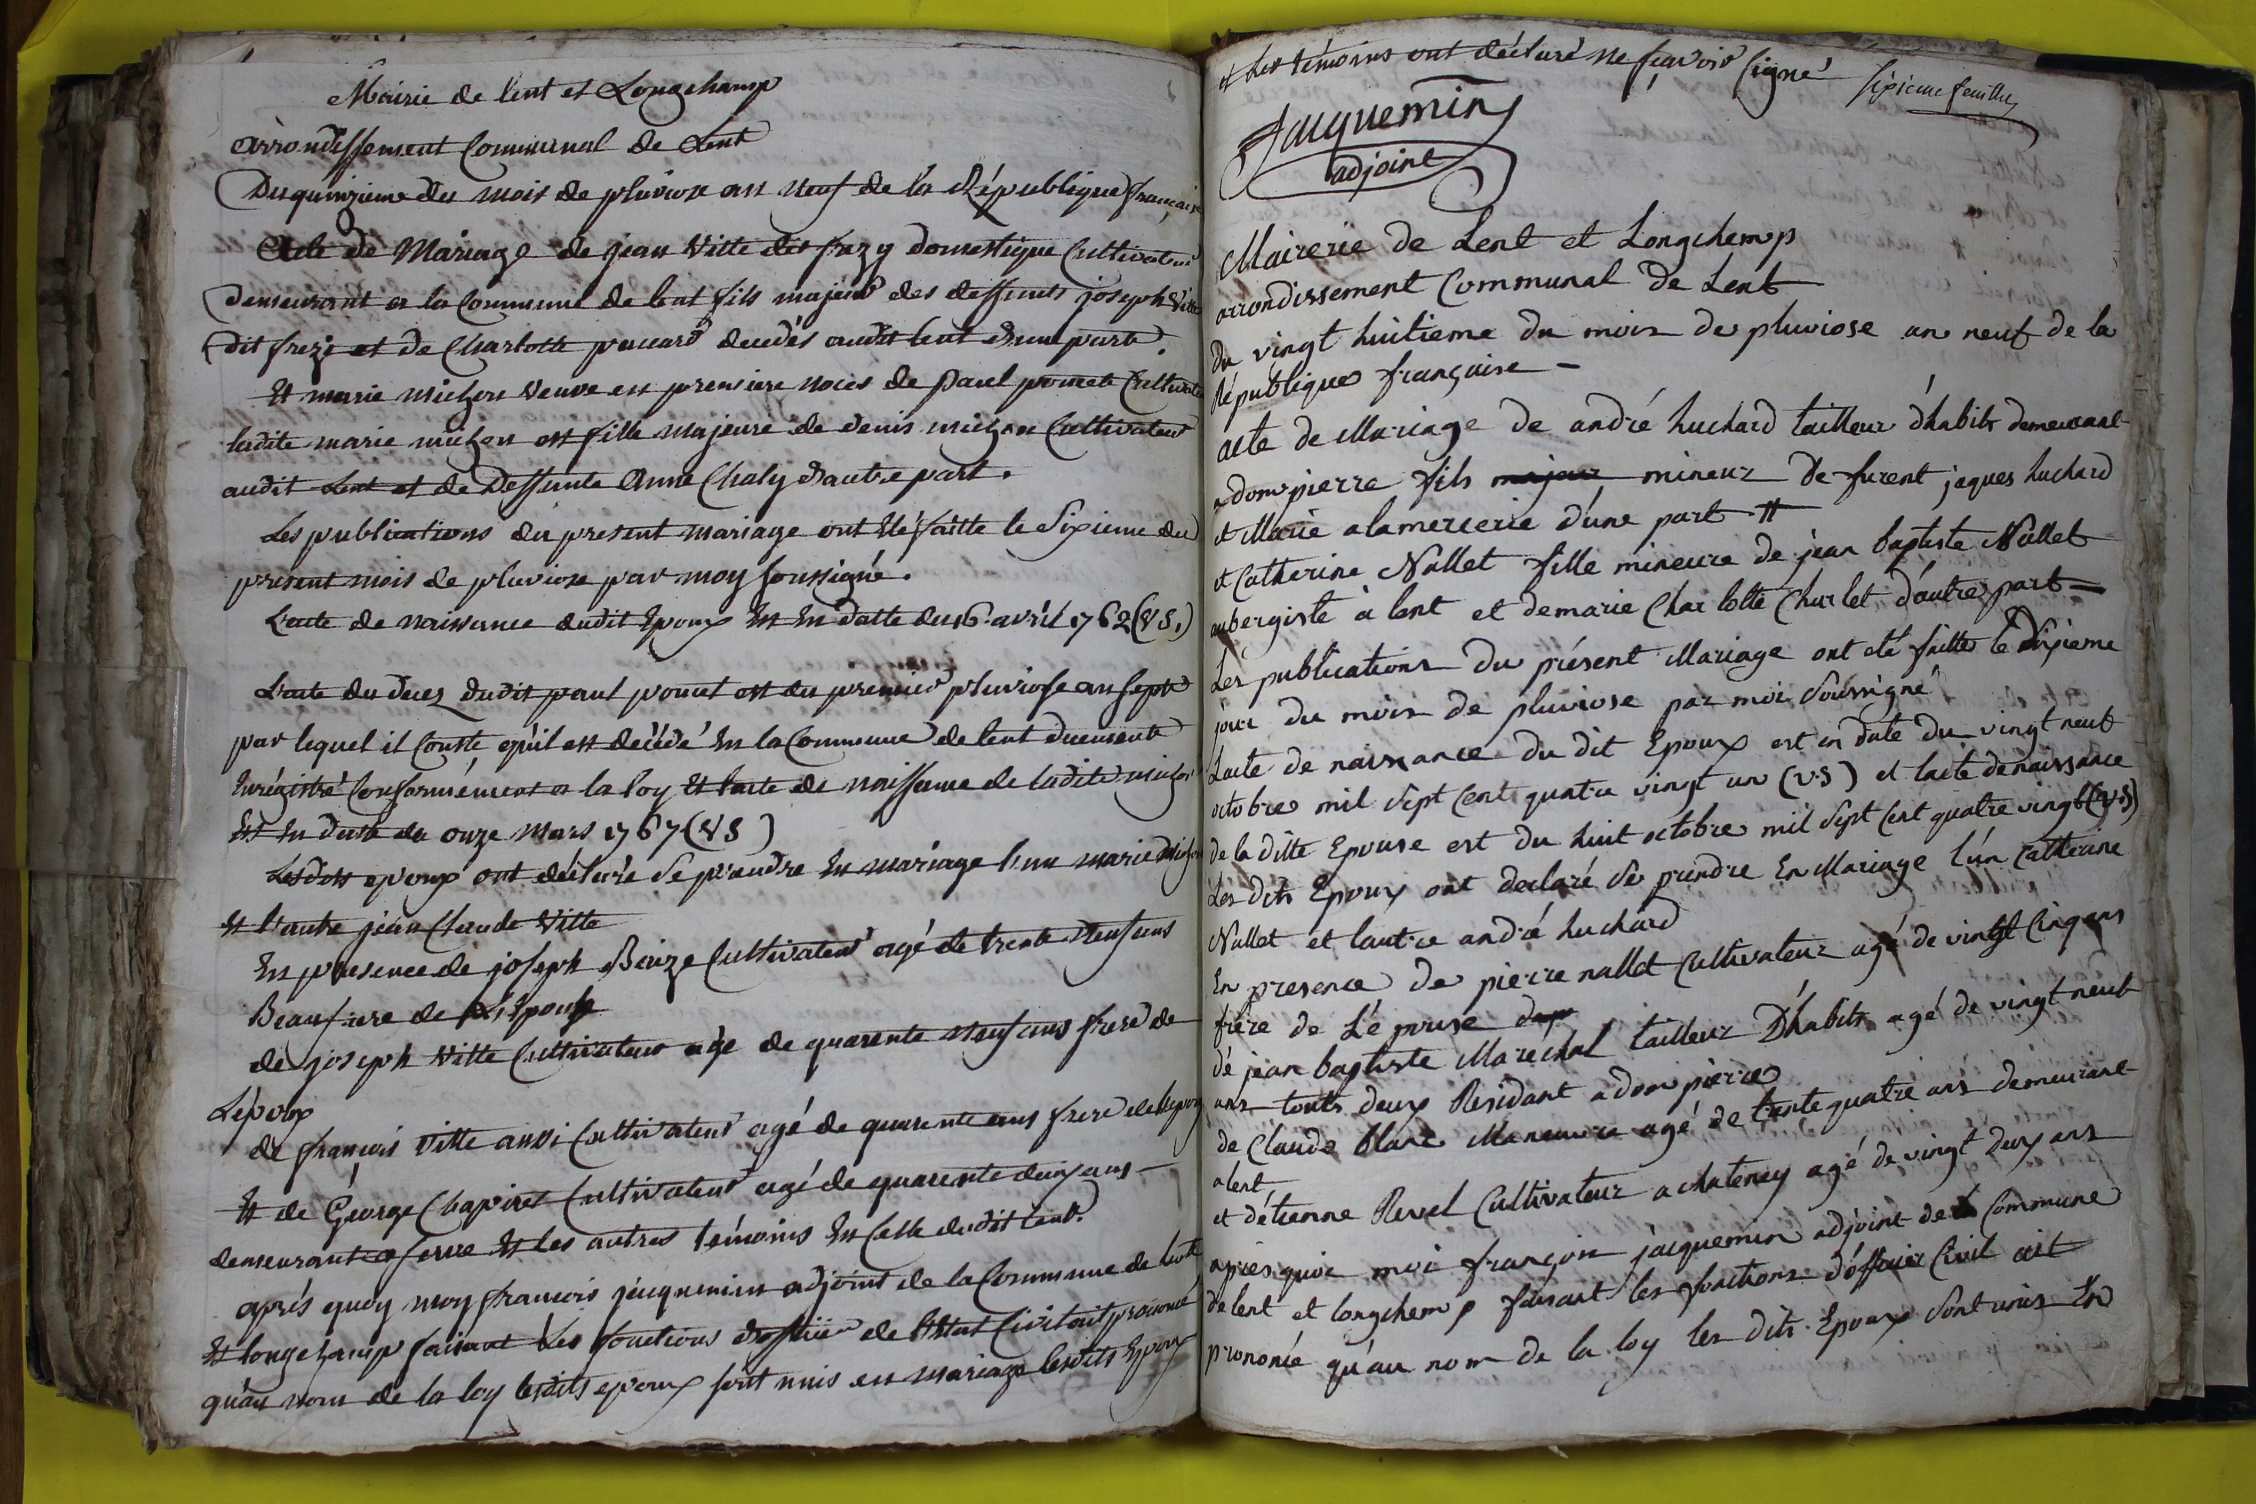 Mairie de lent et Longchamp
arrondissement Communal de Lent
Du quinzieme du mois de pluviose an neuf de la République française
Acte de Mariage de jean Vitte dit frezy domestique Cultivateur
demeurant a la Commune de lent fils majeur des deffunts joseph Vitte
dit frezi et de Charlotte pauard decedés audit lent d'une part.
Et marie michon veuve en premiere noces de Paul poncet Cultivateur
ladite marie michon est fille majeure de denis michon Cultivateur
audit Lent et de Deffunte Anne Chaly d'autre part.
Les publications du present mariage ont été faitte le Sixieme du
present mois de pluviose par moy soussigné.
L'acte de naissance dudit Epoux Est En datte du 16 avril 1762 (VS.)
L'acte du deces dudit paul poncet est du premier pluviose an sept
par lequel il Conste qu'il est décédé En la Commune de lent duement
Enrégistré Conformément a la loy Et l'acte de naissance de ladite michon
Est En date du onze mars 1767 (VS)
Lesdits epoux ont déclaré Se prendre En mariage l'une marie michon
Et l'autre jean Claude Vitte
En presence de joseph Beize Cultivateur agé de trente neuf ans
Beaufrere de l'Epoux
de joseph Vitte Cultivateur age de quarente neuf ans frere de
L'époux
de françois Vitte aussi Cultivateur agé de quarente ans frere de l'epoux
Et de George Chapiret Cultivateur agé de quarente deux ans
demeurant a serve Et les autres témoins En Celle dudit lent.
aprés quoy moy francois jacquemin adjoint de la Commune de lent
Et longchamp faisant les fonctions d'officier de l'Etat Civil ait prononcé
qu'au nom de la loy lesdits epoux sont unis en mariage lesdits Epoux
et les témoins ont déclaré ne sçavoir Signé
sixieme feuillet
Jacquemin
adjoint
Mairerie de Lent et Longchemp
arrondissement Communal de Lent
du vingt huitieme du mois de pluviose an neuf de la
République françoise
acte de Mariage de andré huchard tailleur d'habits demeurant
a dompierre fils majeur mineur de furent jaques huchard
et Marie alamercerie d'une part
et Catherine Nallet fille mineure de jean baptiste Nallet
aubergiste à lent et demarie Charlotte Charlet d'autre part
Les publications du présent Mariage ont été faitte le Sixieme
jour du mois de pluviose par moi Soussigné
Lacte de naissance du dit Epoux est en date du vingt neuf
octobre mil Sept Cent quatre vingt un (VS) et lacte denaissance
de la ditte Epouse est du huit octobre mil Sept Cent quatre vingt (VS)
Les dits Epoux ont declaré Se prendre En Mariage l'ún Catherine
Nallet et lautre andré huchard
En presence de pierre nallet Cultivateur agé de vingt Cinq ans
frére de L'épouse
dé jean baptiste Maréchal tailleur D'habits agé de vingt neuf
ans touts deux Residant a dompierre
de Claude blanc Maneuvre agé de trente quatre ans demeurant
a lent
et détienne Revel Cultivateur a chateney agé de vingt deux ans
apres quoi moi françois jacquemin adjoint de la Commune
de lent et longchemp faisant les fonctions d'officier Civil ait
prononcé qu'au nom de la loy les dits Epoux Sont unis En